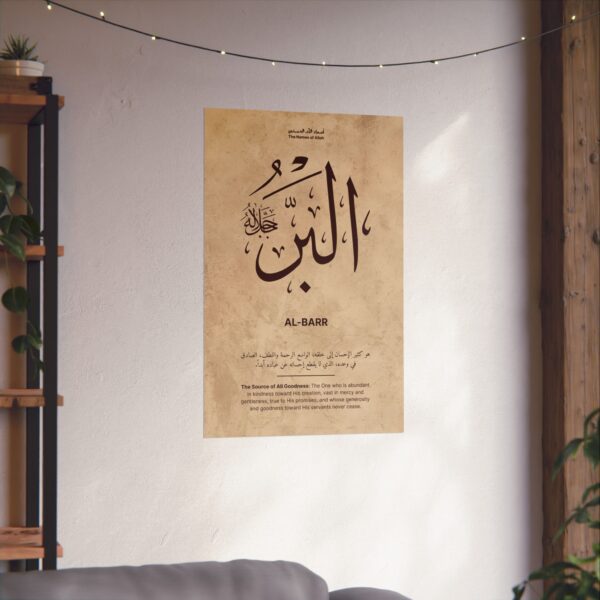 أسماء الله الحسنى
The Names of Allah
البَرُّ
جَلَّ جَلَالُهُ
AL-BARR
هو كثير الإحسان إلى خلقه، الواسع الرحمة واللطف، الصادق
في وعده، الذي لا يقطع إحسانه عن عباده أبدًا.
The Source of All Goodness: The One who is abundant
in kindness toward His creation, vast in mercy and
gentleness, true to His promises, and whose generosity
and goodness toward His servants never cease.